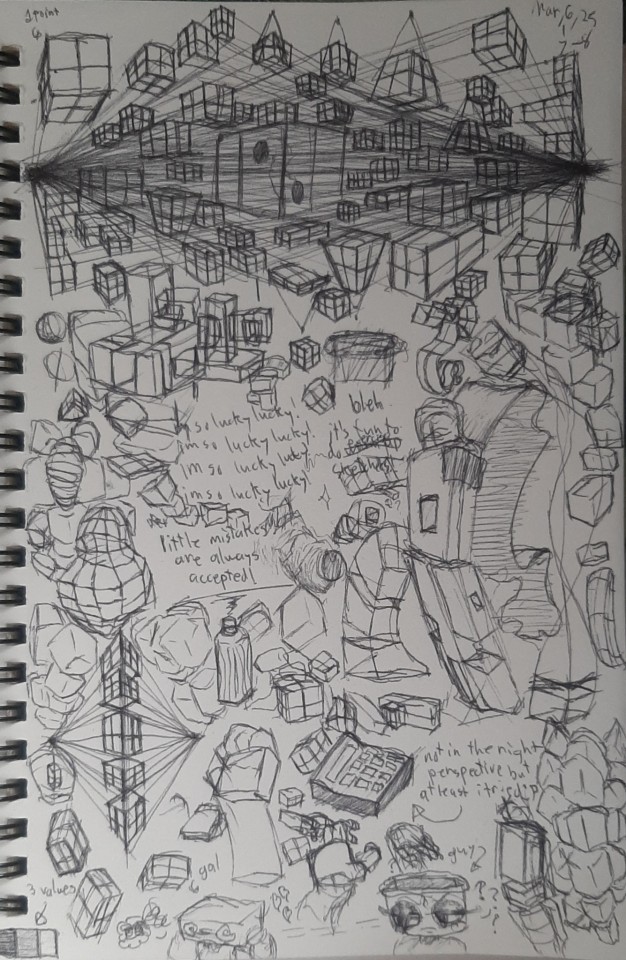 1 point
Mar, 6, 25
7-8
I'm so lucky lucky!
im so lucky lucky!
im so lucky lucky!
im so lucky lucky!
bleh
it's fun to
do
sketches!
little mistakes
are always
accepted!
not in the right
perspective but
at least it tried :p
gal
guy?
3 values
? ? ?